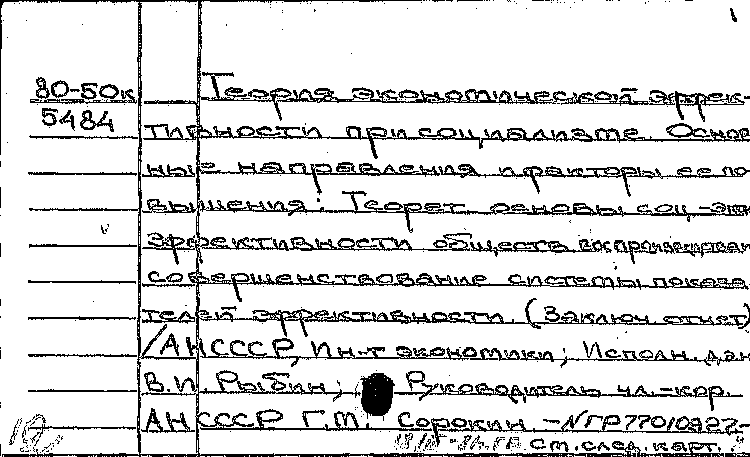 80-50к Теория экономической эффек-
5484 тивности при социализме. Основ
ные направления и факторы ее по
вышения: Теорет. основы соц.-эк
эффективности обществ. воспроизводства
совершенствование системы показа
телей эффективности. (Заключ. отчет)
/АН СССР, Ин-т экономики; Исполн. д.эн
В.И. Рыбин; Руководитель чл.-кор.
АН СССР Г.М. Сорокин. -№ГР77010927-
См. след. карт.